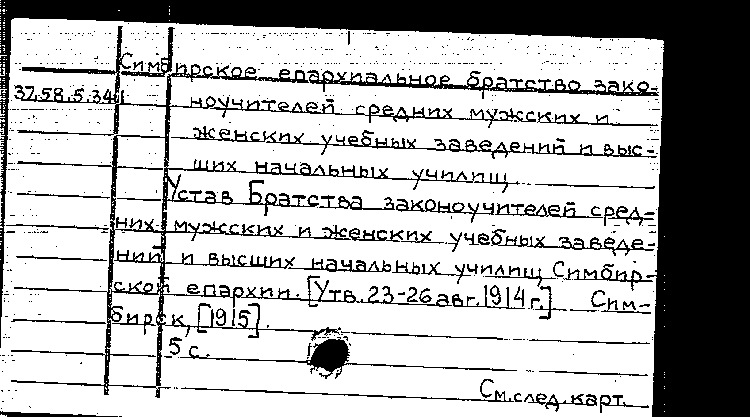 Симбирское епархиальное братство зако-
37.58.5.341 ноучителей средних мужских и
женских учебных заведений и выс-
ших начальных училищ.
Устав Братства законоучителей сред-
них мужских и женских учебных заведе-
ний и высших начальных училищ Симбир-
ской епархии. [Утв. 23-26 авг. 1914 г.] Сим-
бирск, [1915].
5 с.
См. след. карт.